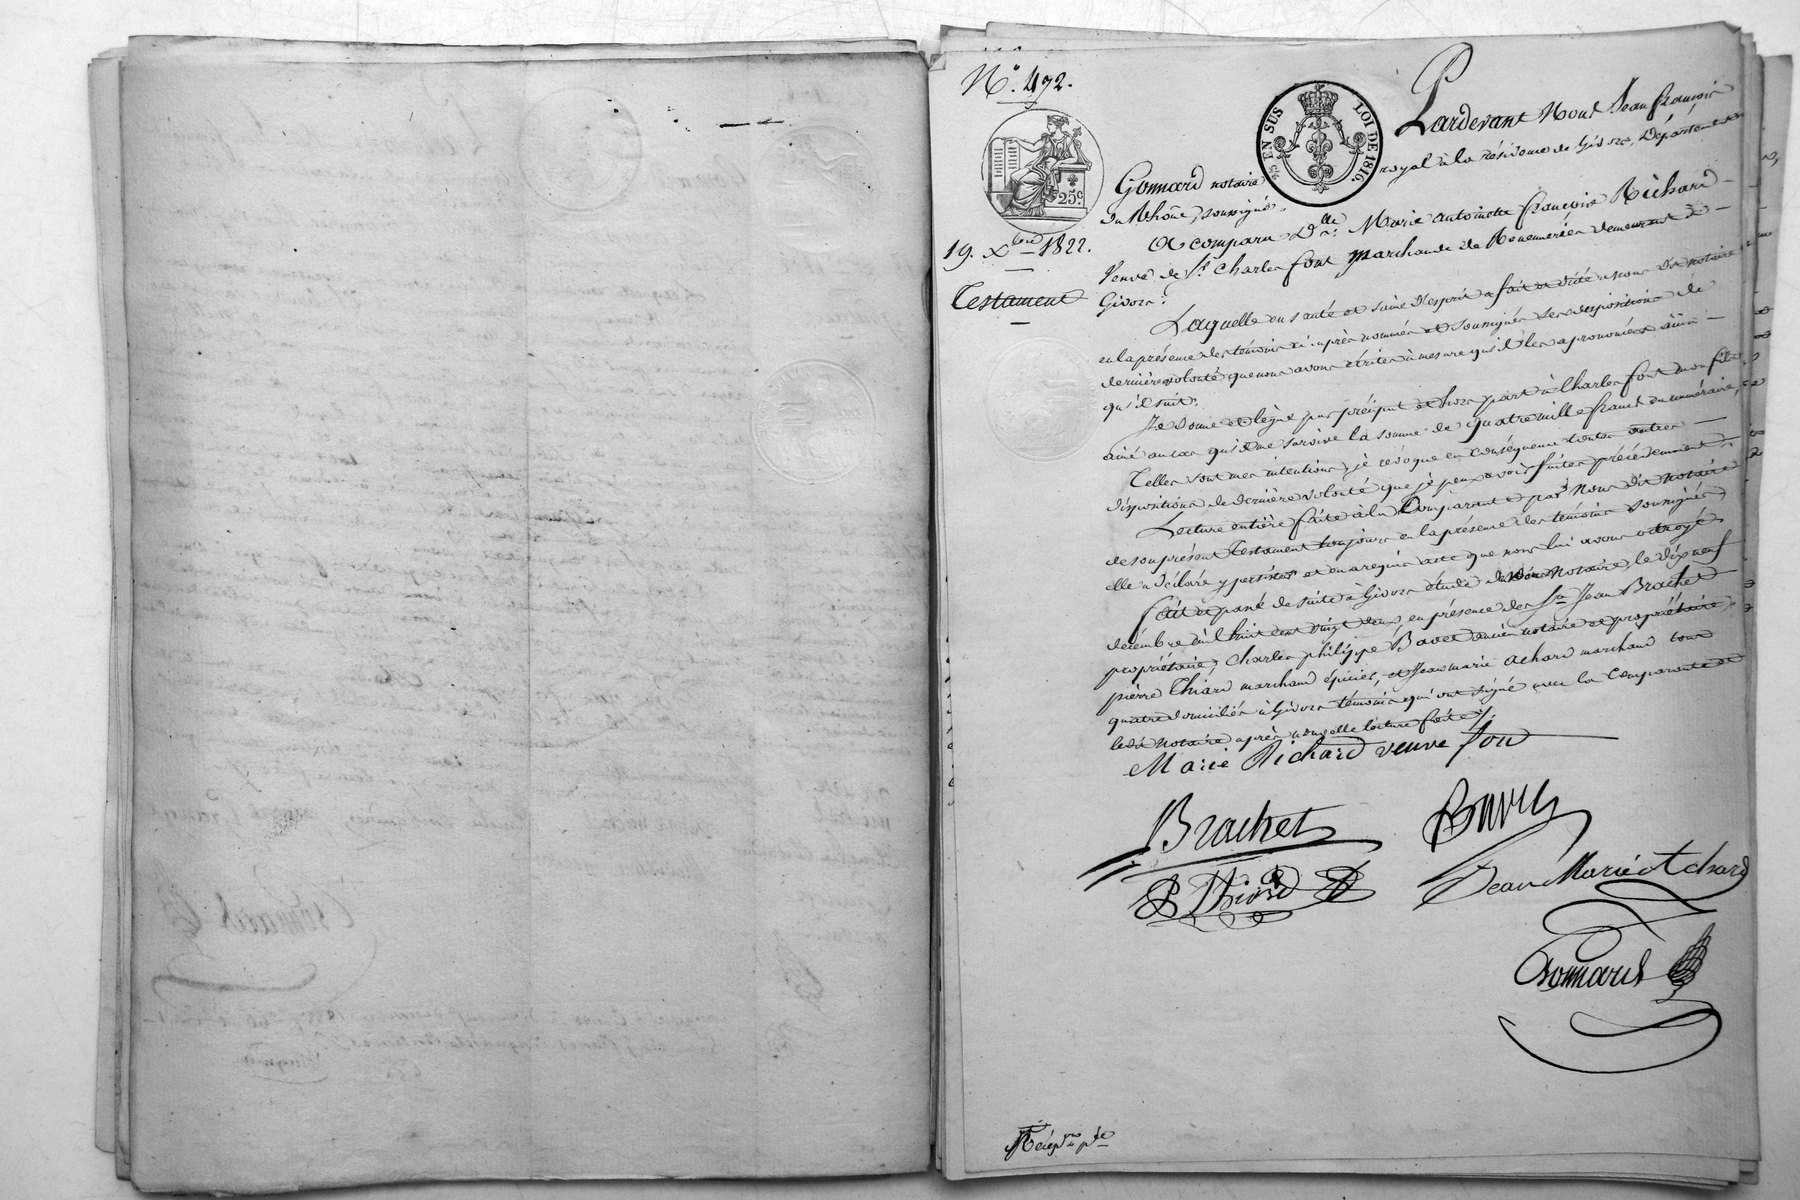 N.° 472.
EN SUS LOI DE 1816.
25c.
19. Xbre 1822.
Testament
Pardevant Nous Jean françois
Gonnard notaire royal à la résidence de Givors, Département
du Rhône, soussigné.
A comparu D.lle Marie antoinette françoise Richard
Veuve de S.r Charles font Marchande de Rouenneries demeurant à
Givors.
Laquelle en santé et saine d'esprit a fait et dicté à nous dit notaire
en la présence des témoins ci après nommés et soussignés ses dispositions de
dernière volonté que nous avons écrites à mesure qu'elle les a prononcées ainsi
qu'il suit.
Je donne et lègue par préciput et hors part à Charles font mon fils
ainé au cas qu'il me survive la somme de quatre mille francs en numéraire,
Telles sont mes intentions, je révoque en conséquence toutes autres
dispositions de dernière volonté que je peux avoir faites précédemment.
Lecture entière faite à la Comparante par Nous dit notaire
de son présent Testament toujours en la présence des témoins soussignés
elle a déclaré y persister et en a requis acte que nous lui avons octroyé
fait et passé de suite à Givors étude dudit notaire, le dix neuf
décembre mil huit cent vingt deux, en présence des S.rs Jean Brachet
propriétaire, Charles philippe Bavet ancien notaire et propriétaire,
pierre Thiard marchand épicier, et Jean marie achard marchand tous
quatre domiciliés à Givors témoins qui ont signé avec la Comparante et
ledit notaire après nouvelle lecture faite.
Marie Richard veuve font
Brachet
P Thiard
Jean Marie Achard
Gonnard